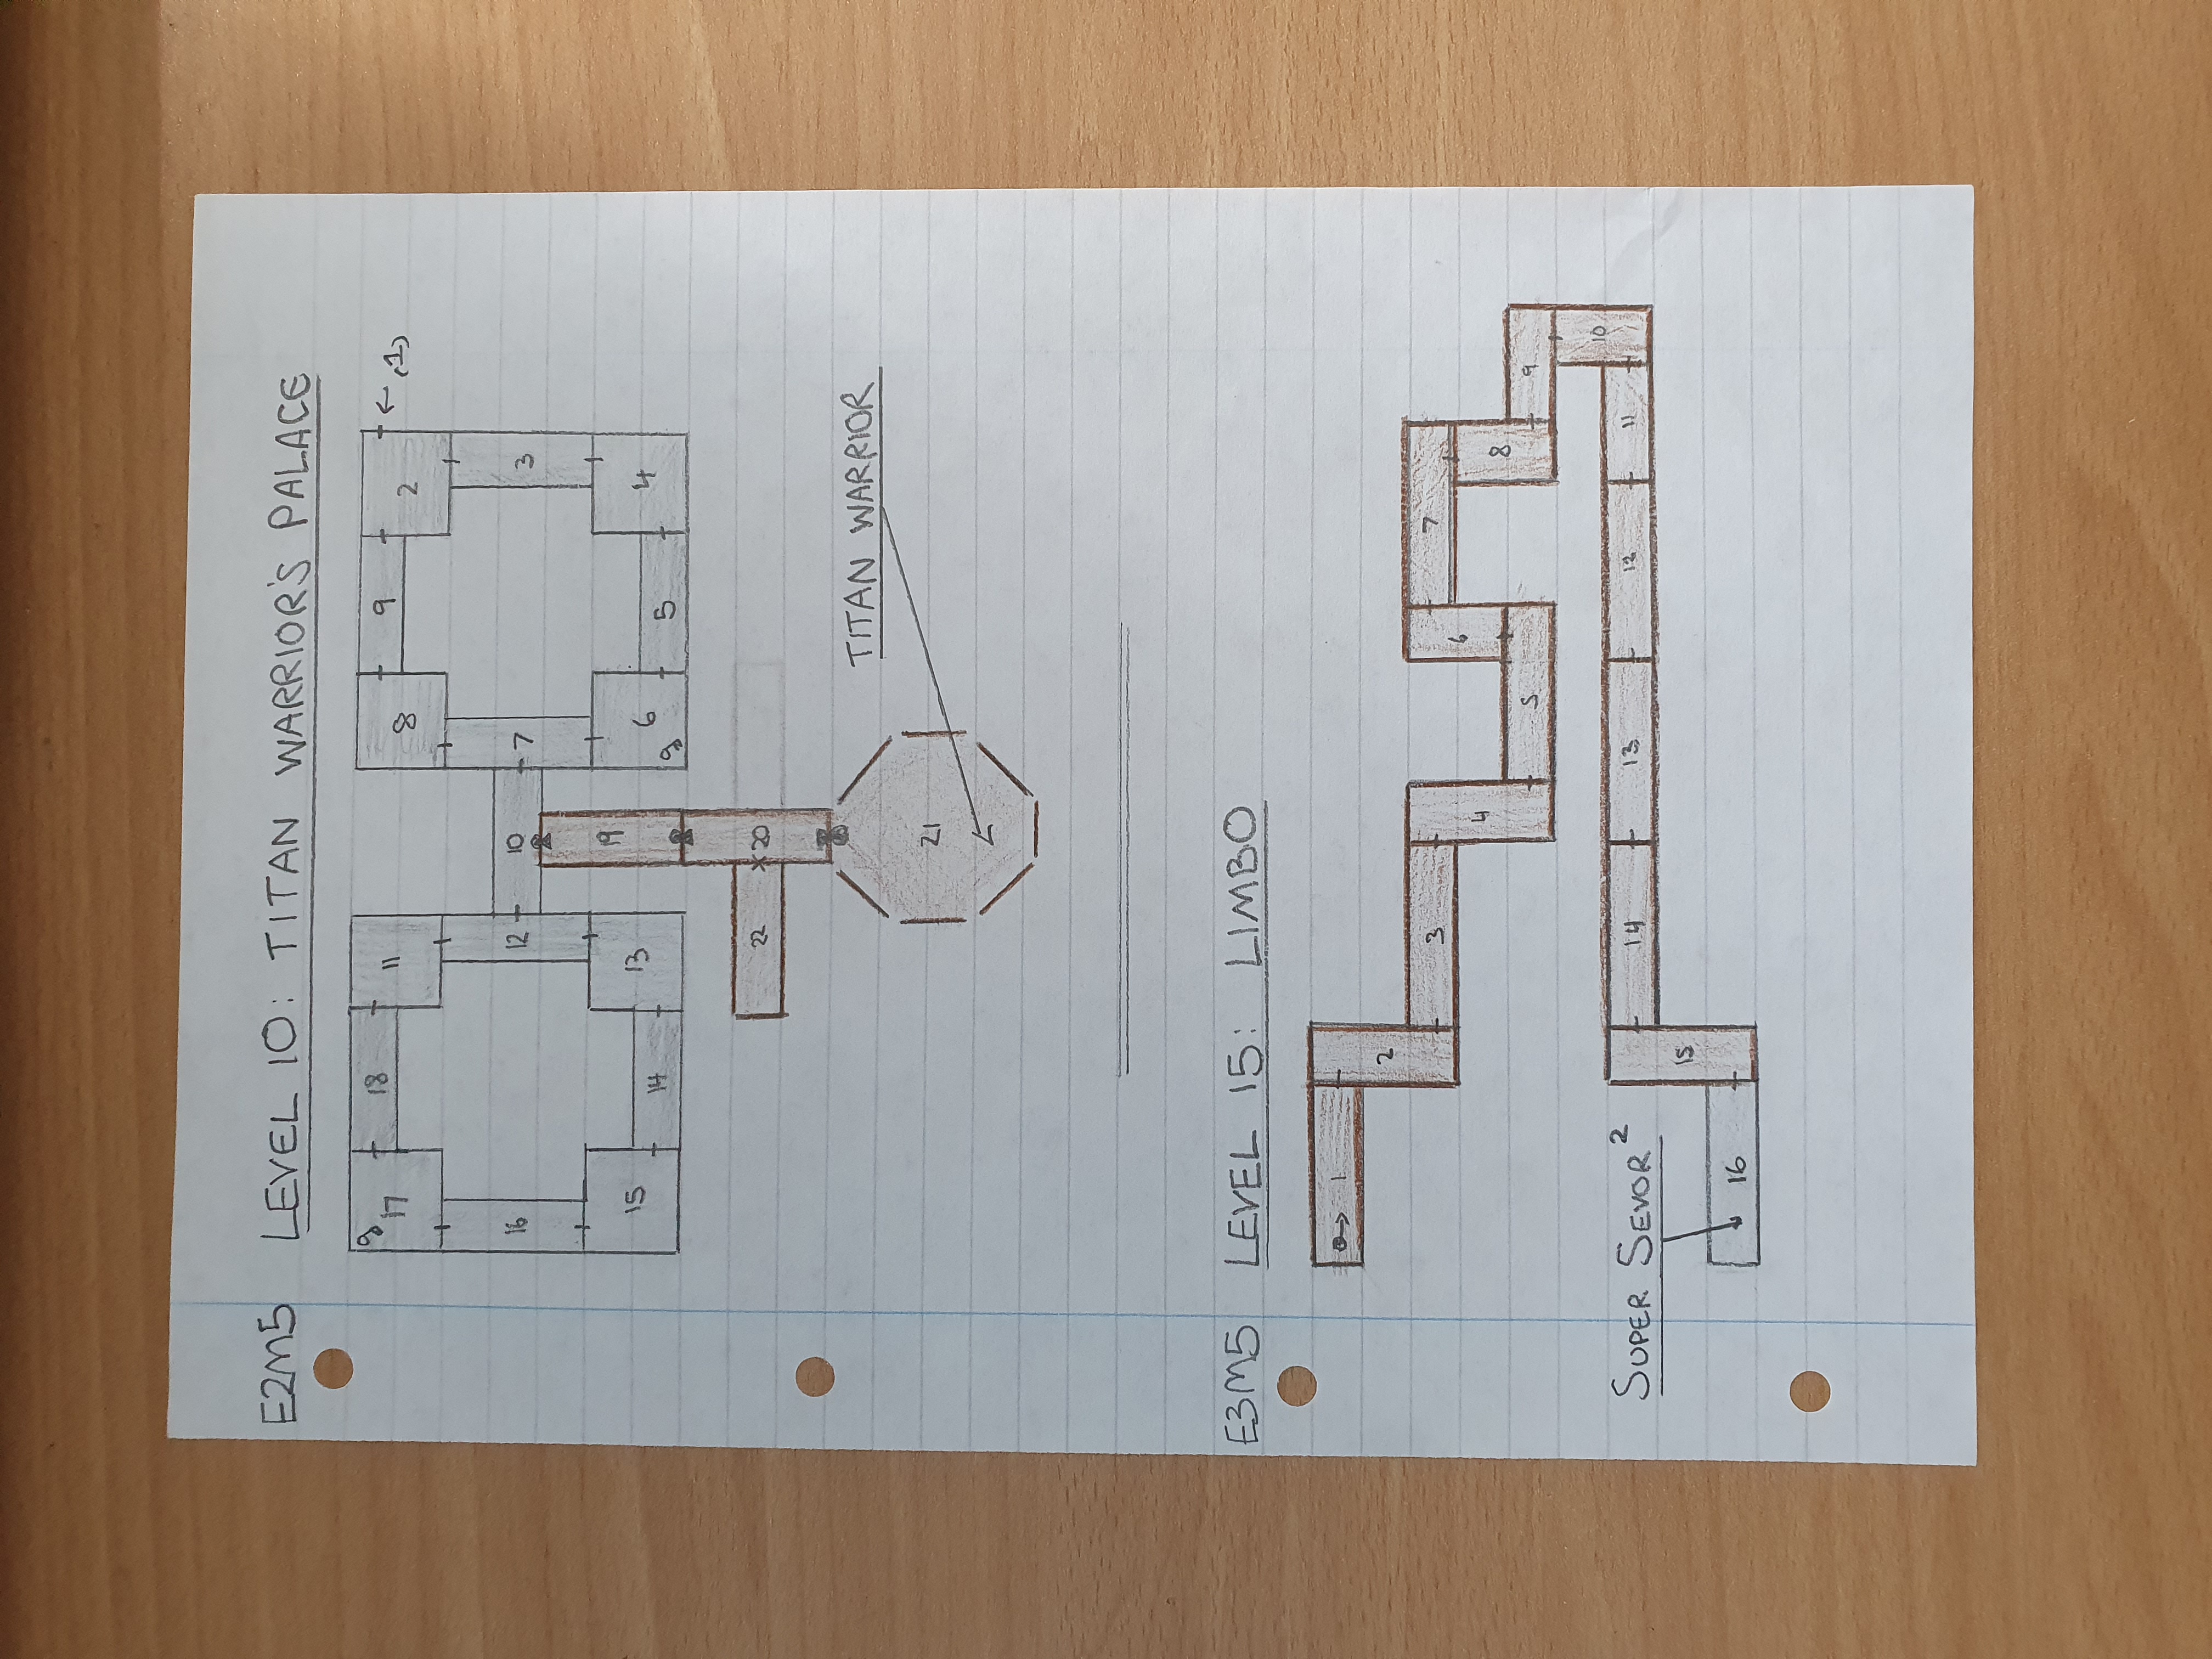 E2M5 LEVEL 10: TITAN WARRIOR'S PALACE
9 17 18 11 8 9 2 ← (1)
16 12 10 7 3
15 14 13 19 6 9 5 4
22 × 20
TITAN WARRIOR
21
E3M5 LEVEL 15: LIMBO
1
2
3 7
4 6
5 8 9
10
SUPER SEVOR² 14 13 12 11
15
16